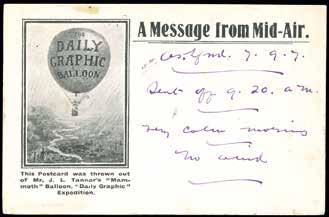 THE
DAILY
GRAPHIC
BALLOON.
This Postcard was thrown out
of Mr. J. L. Tannar's "Mam-
moth" Balloon, "Daily Graphic"
Expedition.
A Message from Mid-Air.
7. 9. 7.
Sent off 9. 20. a.m.
very calm morning
no wind